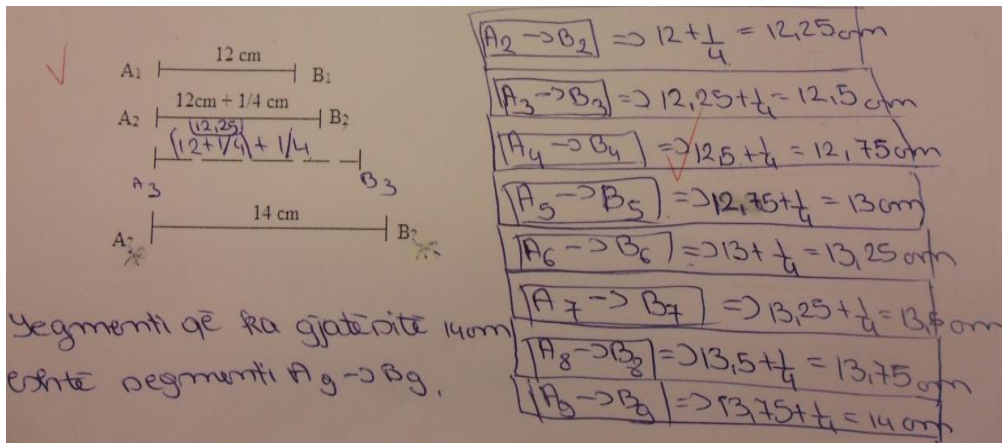 12 cm
A1 B1
12cm + 1/4 cm
A2 B2
12,25
(12+1/4) + 1/4
A3 B3
14 cm
A? B?
Segmenti që ka gjatësitë 14cm
eshtë segmenti A9->B9.
A2->B2 => 12+1/4 = 12,25cm
A3->B3 => 12,25+1/4 = 12,5cm
A4->B4 => 12,5+1/4 = 12,75cm
A5->B5 => 12,75+1/4 = 13cm
A6->B6 => 13+1/4 = 13,25cm
A7->B7 => 13,25+1/4 = 13,5cm
A8->B8 => 13,5+1/4 = 13,75
A9->B9 => 13,75+1/4 = 14cm